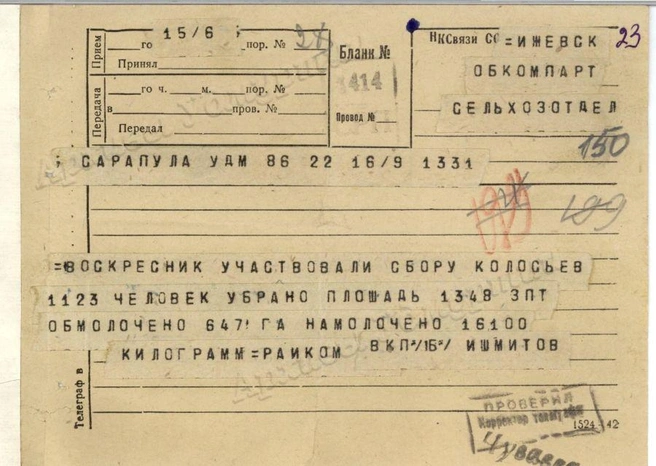 Прием
15/6
го пор. № 28
Принял
Передача
го ч. м. пор. №
в пров. №
Передал
Бланк №
414
Провод №
НКСвязи СС
=ИЖЕВСК
23
ОБКОМПАРТ
СЕЛЬХОЗОТДЕЛ
150
САРАПУЛА УДМ 86 22 16/9 1331
199
=ВОСКРЕСНИК УЧАСТВОВАЛИ СБОРУ КОЛОСЬЕВ
1123 ЧЕЛОВЕК УБРАНО ПЛОЩАДЬ 1348 ЗПТ
ОБМОЛОЧЕНО 647 ГА НАМОЛОЧЕНО 16100
КИЛОГРАММ=РАИКОМ ВКП"/1Б"/ ИШМИТОВ
Телеграф в
ПРОВЕРИЛ
Корректор телеграфа
1524—42